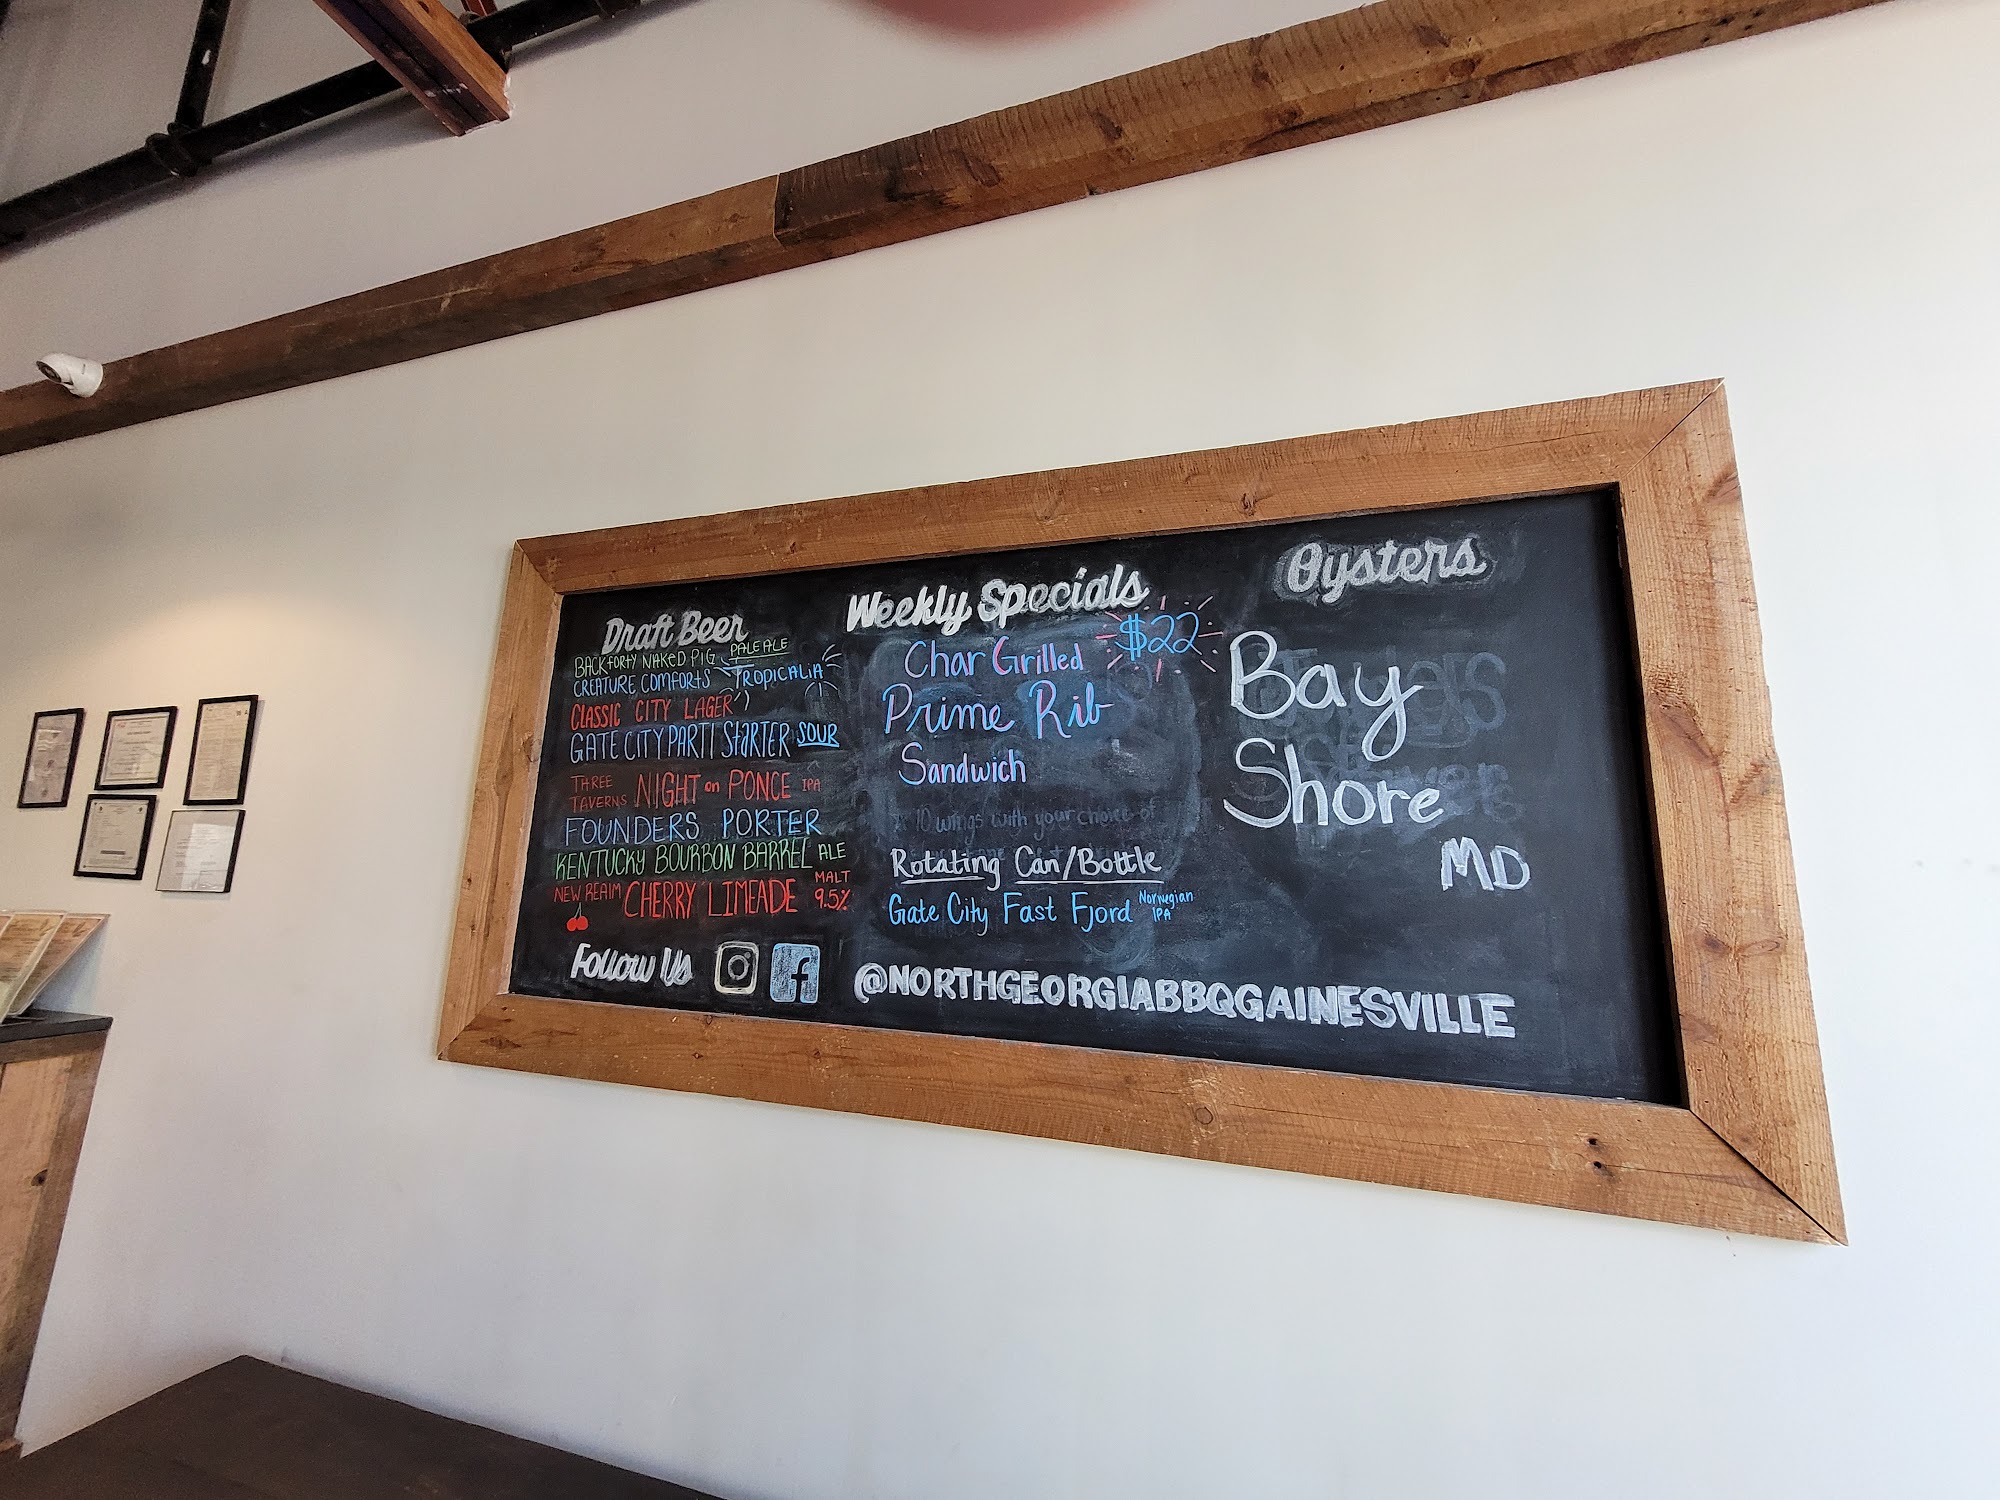 Draft Beer
BACKFORTY NAKED PIG PALE ALE
CREATURE COMFORTS TROPICALIA
CLASSIC CITY LAGER
GATE CITY PARTI STARTER SOUR
THREE TAVERNS NIGHT on PONCE IPA
FOUNDERS PORTER
KENTUCKY BOURBON BARREL ALE
NEW REALM CHERRY LIMEADE MALT 9.5%
Follow Us
Weekly Specials
$22
Char Grilled
Prime Rib
Sandwich
10 wings with your choice of
Rotating Can/Bottle
Gate City Fast Fjord Norwegian IPA
@NORTHGEORGIABBQGAINESVILLE
Oysters
Bay
Shore
MD